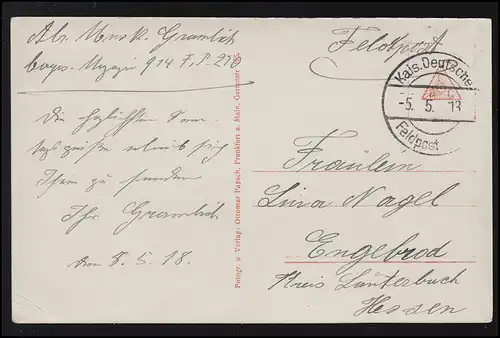 Abs. Musk. Gramlich
Magazin 914 F.P. 270
Feldpost
Kais. Deutsche
-5. 5. 18
Feldpost
Die herzlichsten Sonn-
tagsgrüße erlaubt sich
Ihnen zu senden
Ihr Gramlich
den 5.5.18.
Fräulein
Lina Nagel
Engelrod
Kreis Lauterbach
Hessen
Photogr. u Verlag: Ottomar Papsch, Frankfurt a. Main,